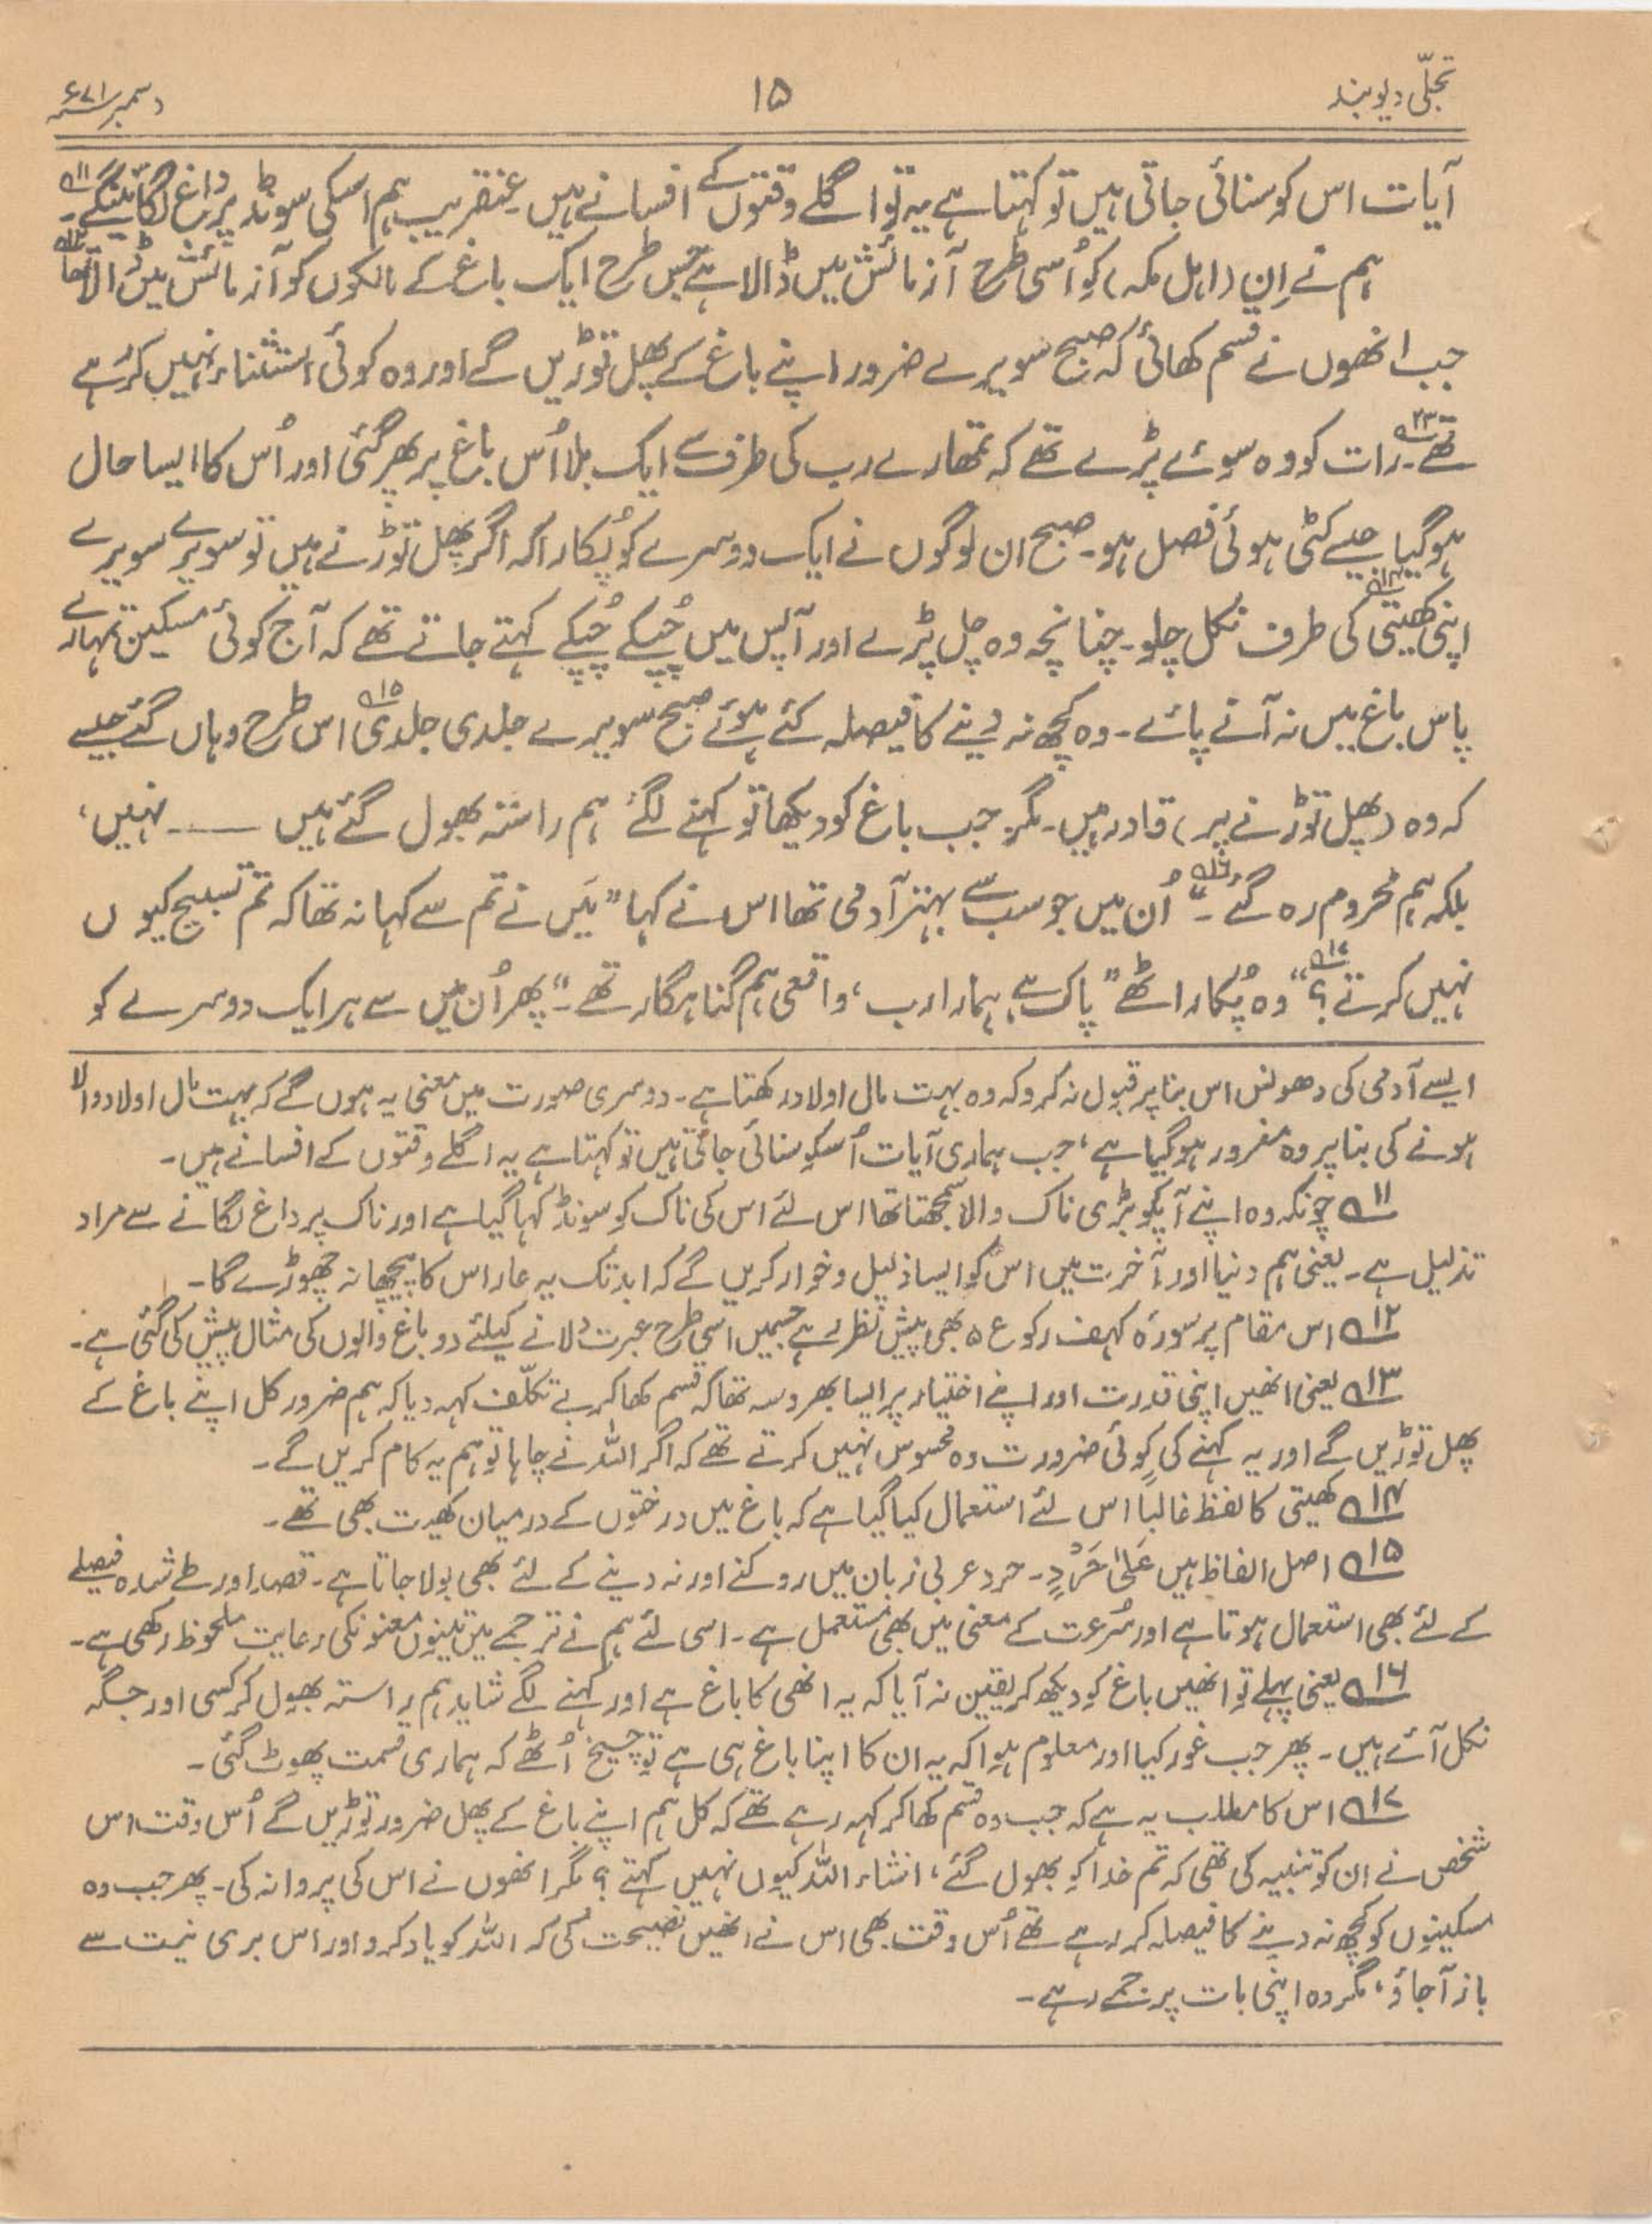 تجلّی دیوبند
۱۵
دسمبر ۷۱ء
آیات اس کو سنائی جاتی ہیں تو کہتا ہے یہ تو اگلے وقتوں کے افسانے ہیں۔ عنقریب ہم اسکی سونڈ پر داغ لگائینگے۔ ۱۱
ہم نے اِن (اہل مکہ) کو اُسی طرح آزمائش میں ڈالا ہے جس طرح ایک باغ کے مالکوں کو آزمائش میں ڈالا تھا ۱۲
جب انھوں نے قسم کھائی کہ صبح سویرے ضرور اپنے باغ کے پھل توڑیں گے اور وہ کوئی استثناء نہیں کر رہے
تھے۔ ۱۳ رات کو وہ سوئے پڑے تھے کہ تمھارے رب کی طرف سے ایک بلا اُس باغ پر پھر گئی اور اُس کا ایسا حال
ہوگیا جیسے کٹی ہوئی فصل ہو۔ صبح ان لوگوں نے ایک دوسرے کو پُکارا کہ اگر پھل توڑنے ہیں تو سویرے سویرے
اپنی کھیتی ۱۴ کی طرف نکل چلو۔ چنانچہ وہ چل پڑے اور آپس میں چُپکے چُپکے کہتے جاتے تھے کہ آج کوئی مسکین تمہارے
پاس باغ میں نہ آنے پائے۔ وہ کچھ نہ دینے کا فیصلہ کئے ہوئے صبح سویرے جلدی جلدی ۱۵ اس طرح وہاں گئے جیسے
کہ وہ (پھل توڑنے پر) قادر ہیں۔ مگر جب باغ کو دیکھا تو کہنے لگے ہم راستہ بھول گئے ہیں —— نہیں،
بلکہ ہم محروم رہ گئے۔“ ۱۶ اُن میں جو سب سے بہتر آدمی تھا اس نے کہا ”میں نے تم سے کہا نہ تھا کہ تم تسبیح کیوں
نہیں کرتے؟“ ۱۷ وہ پُکار اٹھے ”پاک ہے ہمارا رب، واقعی ہم گناہگار تھے۔“ پھر اُن میں سے ہر ایک دوسرے کو
ایسے آدمی کی دھونس اس بنا پر قبول نہ کرو کہ وہ بہت مال اولاد رکھتا ہے۔ دوسری صورت میں معنی یہ ہوں گے کہ بہت مال اولاد والا
ہونے کی بنا پر وہ مغرور ہوگیا ہے، جب ہماری آیات اُسکو سنائی جاتی ہیں تو کہتا ہے یہ اگلے وقتوں کے افسانے ہیں۔
۱۱ چونکہ وہ اپنے آپکو بڑی ناک والا سمجھتا تھا اس لئے اس کی ناک کو سونڈ کہا گیا ہے اور ناک پر داغ لگانے سے مراد
تذلیل ہے۔ یعنی ہم دنیا اور آخرت میں اس کو ایسا ذلیل و خوار کریں گے کہ ابد تک یہ عار اس کا پیچھا نہ چھوڑے گا۔
۱۲ اس مقام پر سورۂ کہف رکوع ۵ بھی پیش نظر رہے جسمیں اسی طرح عبرت دلانے کیلئے دو باغ والوں کی مثال پیش کی گئی ہے۔
۱۳ یعنی انھیں اپنی قدرت اور اپنے اختیار پر ایسا بھروسہ تھا کہ قسم کھا کر بے تکلّف کہہ دیا کہ ہم ضرور کل اپنے باغ کے
پھل توڑیں گے اور یہ کہنے کی کوئی ضرورت وہ محسوس نہیں کرتے تھے کہ اگر اللہ نے چاہا تو ہم یہ کام کریں گے۔
۱۴ کھیتی کا لفظ غالباً اس لئے استعمال کیا گیا ہے کہ باغ میں درختوں کے درمیان کھیت بھی تھے۔
۱۵ اصل الفاظ ہیں عَلیٰ حَرْدٍ۔ حرد عربی زبان میں روکنے اور نہ دینے کے لئے بھی بولا جاتا ہے۔ قصد اور طے شدہ فیصلے
کے لئے بھی استعمال ہوتا ہے اور سُرعت کے معنی میں بھی مستعمل ہے۔ اسی لئے ہم نے ترجمے میں تینوں معنونکی رعایت ملحوظ رکھی ہے۔
۱۶ یعنی پہلے تو انھیں باغ کو دیکھ کر یقین نہ آیا کہ یہ انھی کا باغ ہے اور کہنے لگے شاید ہم راستہ بھول کر کسی اور جگہ
نکل آئے ہیں۔ پھر جب غور کیا اور معلوم ہوا کہ یہ ان کا اپنا باغ ہی ہے تو چیخ اُٹھے کہ ہماری قسمت پھوٹ گئی۔
۱۷ اس کا مطلب یہ ہے کہ جب وہ قسم کھا کر کہہ رہے تھے کہ کل ہم اپنے باغ کے پھل ضرور توڑیں گے اُس وقت اس
شخص نے ان کو تنبیہ کی تھی کہ تم خدا کو بھول گئے، انشاء اللہ کیوں نہیں کہتے؟ مگر انھوں نے اس کی پروا نہ کی۔ پھر جب وہ
مسکینوں کو کچھ نہ دینے کا فیصلہ کر رہے تھے اُس وقت بھی اس نے انھیں نصیحت کی کہ اللہ کو یاد کرو اور اس بری نیت سے
باز آجاؤ، مگر وہ اپنی بات پر جمے رہے۔